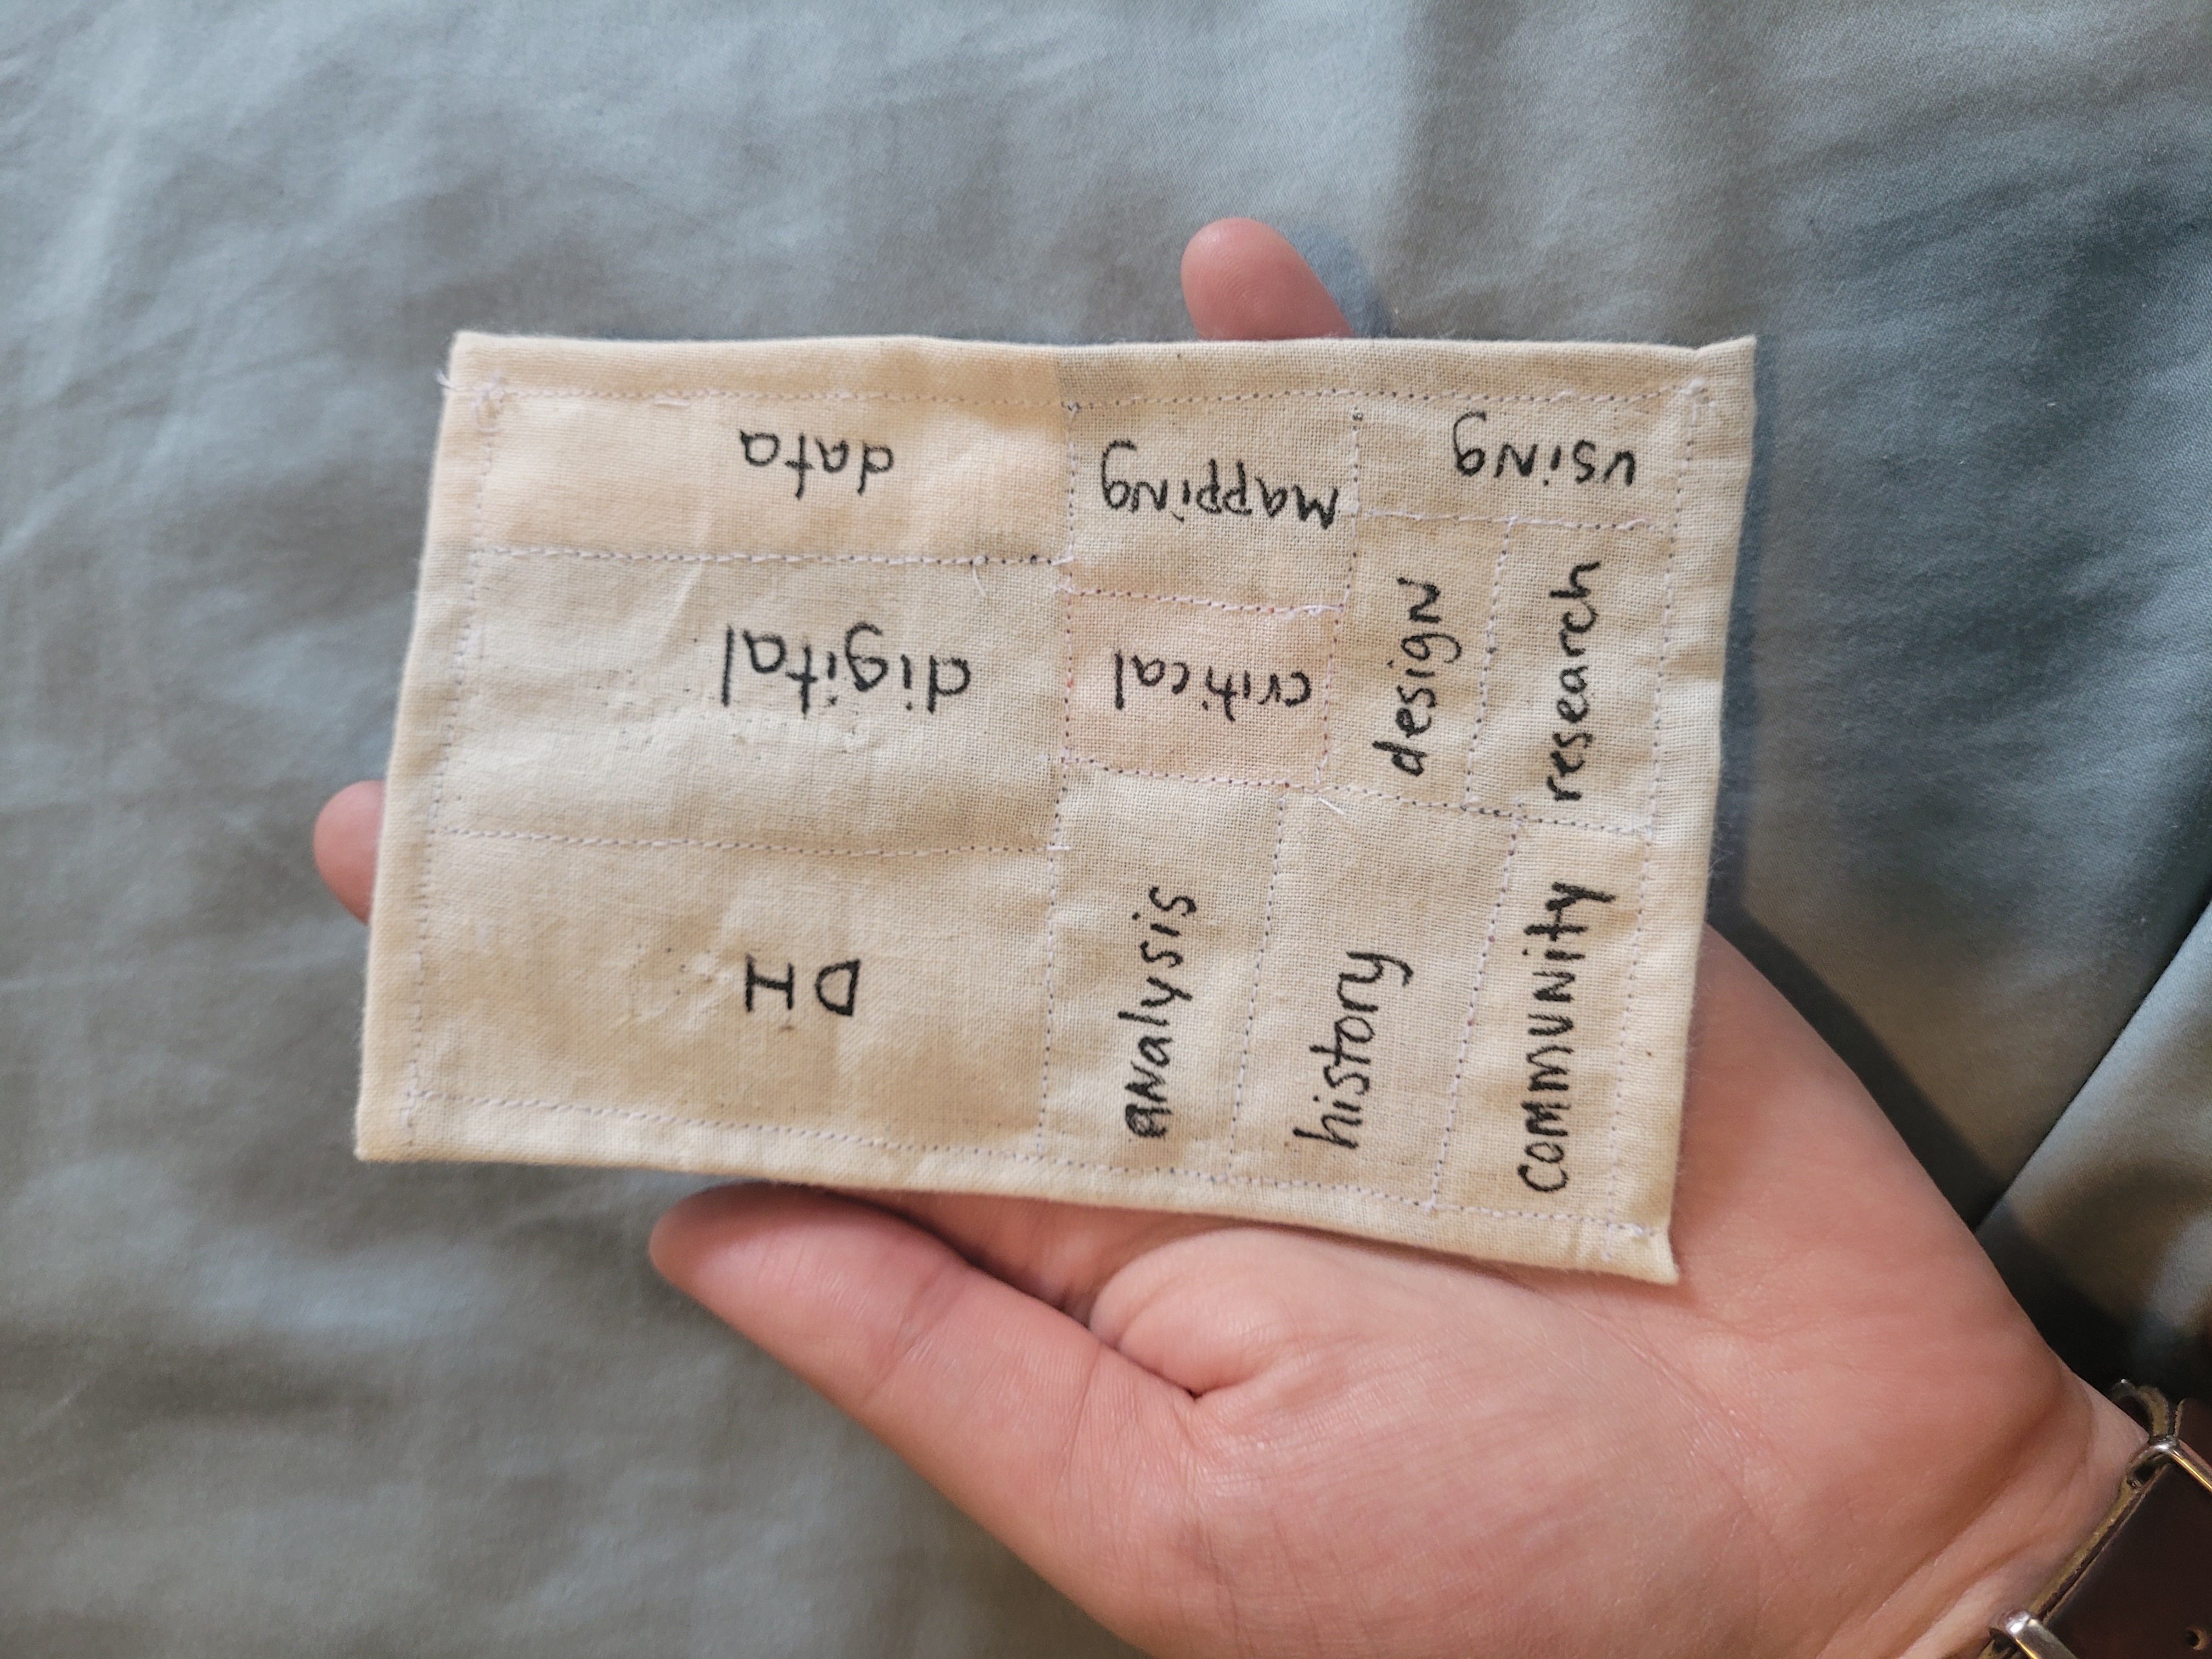 DH
digital
data
analysis
critical
mapping
history
design
using
community
research